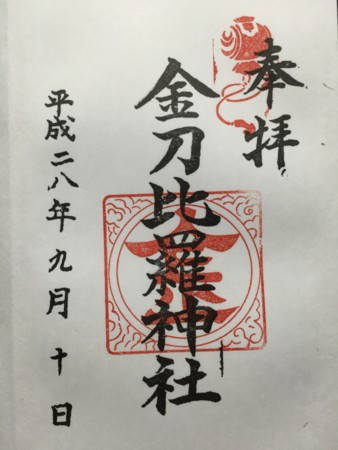 奉拝
金刀比羅神社
平成二八年九月十日